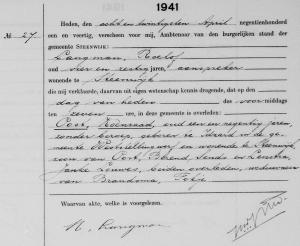 1941
№ 27
Heden, den achtentwintigsten April negentienhonderd
een en veertig, verscheen voor mij, Ambtenaar van den burgerlijken stand der
gemeente STEENWIJK:
Langman, Roelof
oud vier en zestig jaren, aanspreker
wonende te Steenwijk
die mij verklaarde, daarvan uit eigen wetenschap kennis dragende, dat op den
dag van heden des voor-middags
ten zeven ure, in deze gemeente is overleden:
oud een en negentig jaren,
zonder beroep, geboren te in de ge-
meente Weststellingwerf en wonende te Steenwijk
zoon van Oort, Berend en
Janke beiden overleden, weduwnaar
van Brandsma,
Waarvan akte, welke is voorgelezen.